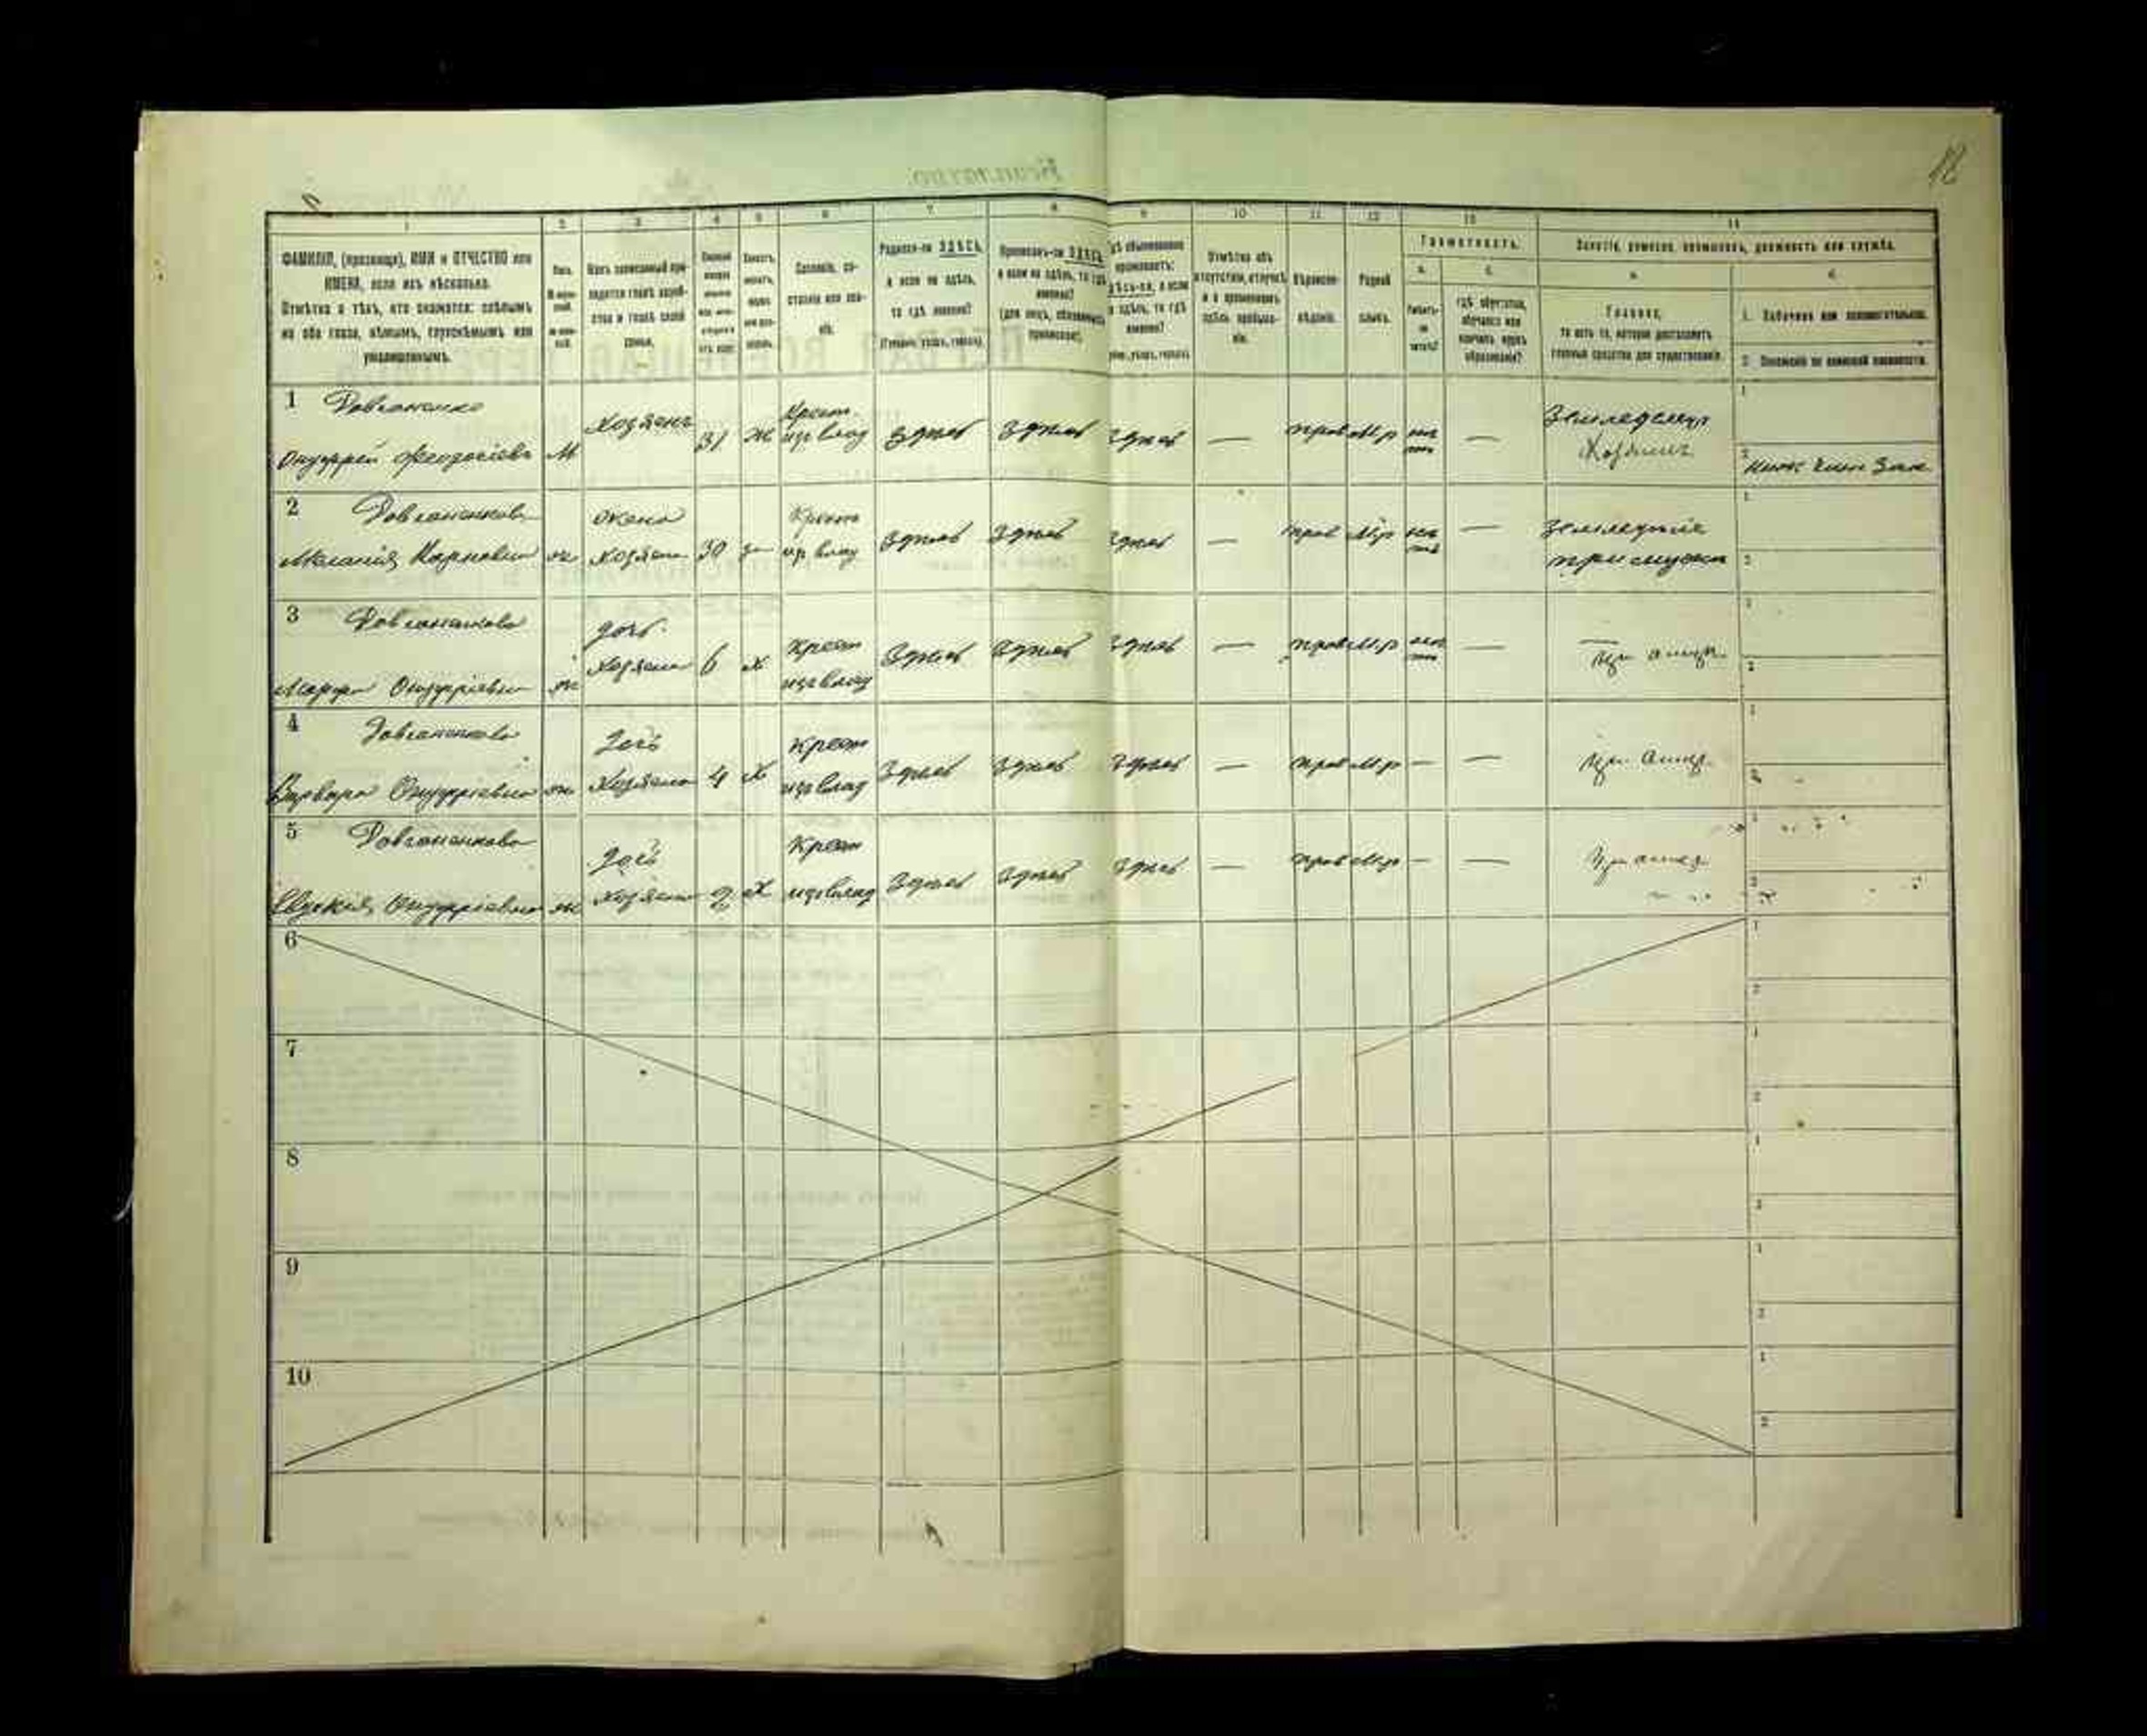 18
1 2 3 4 5 6 7 8 9 10 11 12 13 14
ФАМИЛІЯ, (прозвище), ИМЯ и ОТЧЕСТВО или
ИМЕНА, если ихъ нѣсколько.
Отмѣтка о тѣхъ, кто окажется: слѣпымъ
на оба глаза, нѣмымъ, глухонѣмымъ или
умалишеннымъ.
Полъ.
Какъ записанный при-
ходится главѣ хозяй-
ства и главѣ своей
семьи.
Сословіе, со-
стояніе или зва-
ніе.
Родился-ли ЗДѢСЬ,
а если не здѣсь,
то гдѣ именно?
(Губернія, уѣздъ, городъ)
Приписанъ-ли ЗДѢСЬ,
а если не здѣсь, то гдѣ
именно?
(для лицъ, обязанныхъ
припискою).
Гдѣ обыкновенно
проживаетъ:
здѣсь-ли, а если
не здѣсь, то гдѣ
именно?
Отмѣтка объ
отсутствіи, отлучкѣ
и о временномъ
здѣсь пребыва-
ніи.
Вѣроиспо-
вѣданіе.
Родной
языкъ.
Грамотность.
а.
Умѣетъ-
ли
читать?
б.
гдѣ обучается,
обучался или
кончилъ курсъ
образованія?
Занятіе, ремесло, промыселъ, должность или служба.
а.
Главное,
то есть то, которое доставляетъ
главныя средства для существованія.
б.
1. Побочное или вспомогательное.
2. Положеніе по воинской повинности.
1 Довганенко
Онуфрей Феодосіевъ М Хозяинъ 31 ж Крест. изъ влад здѣсь здѣсь здѣсь — прав М.р нѣтъ — Земледелецъ Хозяинъ
2 Довганенкова
Меланія Карповна ж жена хозяина 30 з Крест из влад здѣсь здѣсь здѣсь — прав М.р нѣтъ — Земледеліе при мужѣ
3 Довганенкова
Марфа Онуфріевна ж дочь хозяина 6 Х Крест изъ влад здѣсь здѣсь здѣсь — прав М.р нѣтъ — при отцѣ
4 Довганенкова
Варвара Онуфріевна ж дочь хозяина 4 Х Крест изъ влад здѣсь здѣсь здѣсь — прав М.р — — при отцѣ
5 Довганенкова
Евдокія Онуфріевна ж дочь хозяина 2 Х Крест изъ влад здѣсь здѣсь здѣсь — прав М.р — — при отцѣ
6
7
8
9
10